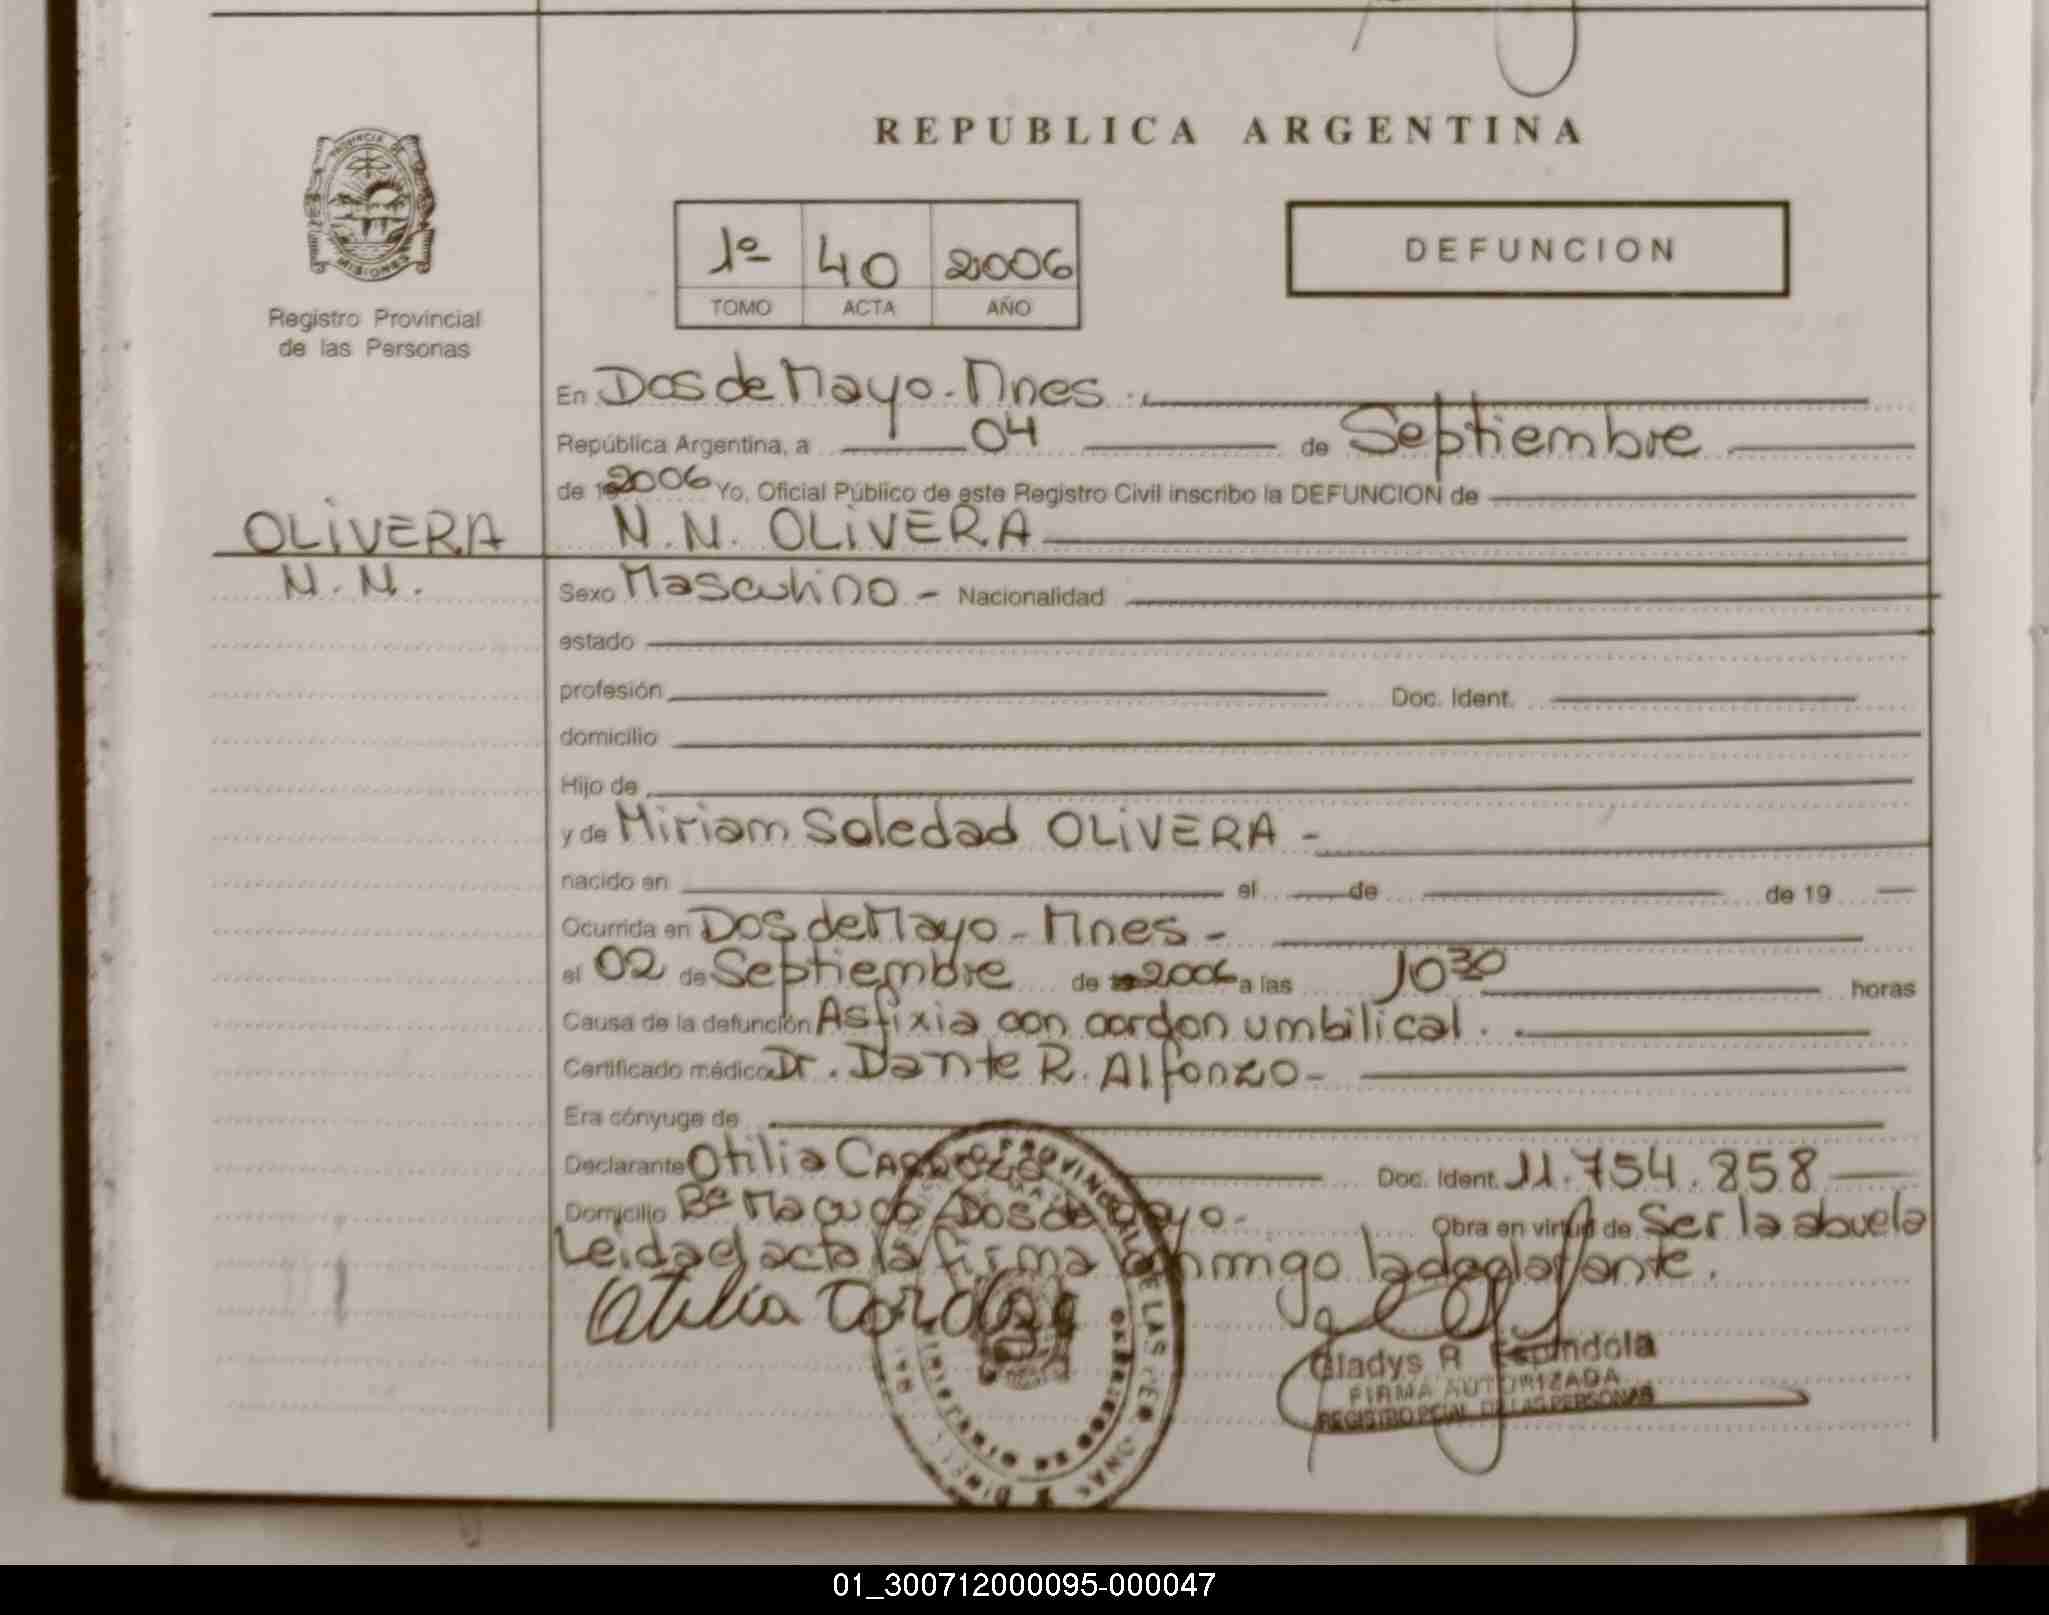 REPUBLICA ARGENTINA
PROVINCIA DE
MISIONES
Registro Provincial
de las Personas
1º 40 2006
TOMO ACTA AÑO
DEFUNCION
En Dos de Mayo - Mnes
República Argentina, a 04 de Septiembre
de 2006 Yo, Oficial Público de este Registro Civil inscribo la DEFUNCION de
OLIVERA N.N. OLIVERA
N.N. Sexo Masculino - Nacionalidad
estado
profesión Doc. Ident.
domicilio
Hijo de
y de Miriam Soledad OLIVERA -
nacido en el de de 19
Ocurrida en Dos de Mayo - Mnes -
el 02 de Septiembre de 2006 a las 10 30 horas
Causa de la defunción Asfixia con cordon umbilical.
Certificado médico Dr. Dante R. Alfonzo -
Era cónyuge de
Declarante Otilia Doc. Ident. 11.754.858
Domicilio Bº Dos de Mayo - Obra en virtud de Ser la abuela
Leida el acta la firma conmigo la declarante.
Otilia
Gladys R. Espindola
FIRMA AUTORIZADA
REGISTRO PCIAL DE LAS PERSONAS
01_300712000095-000047